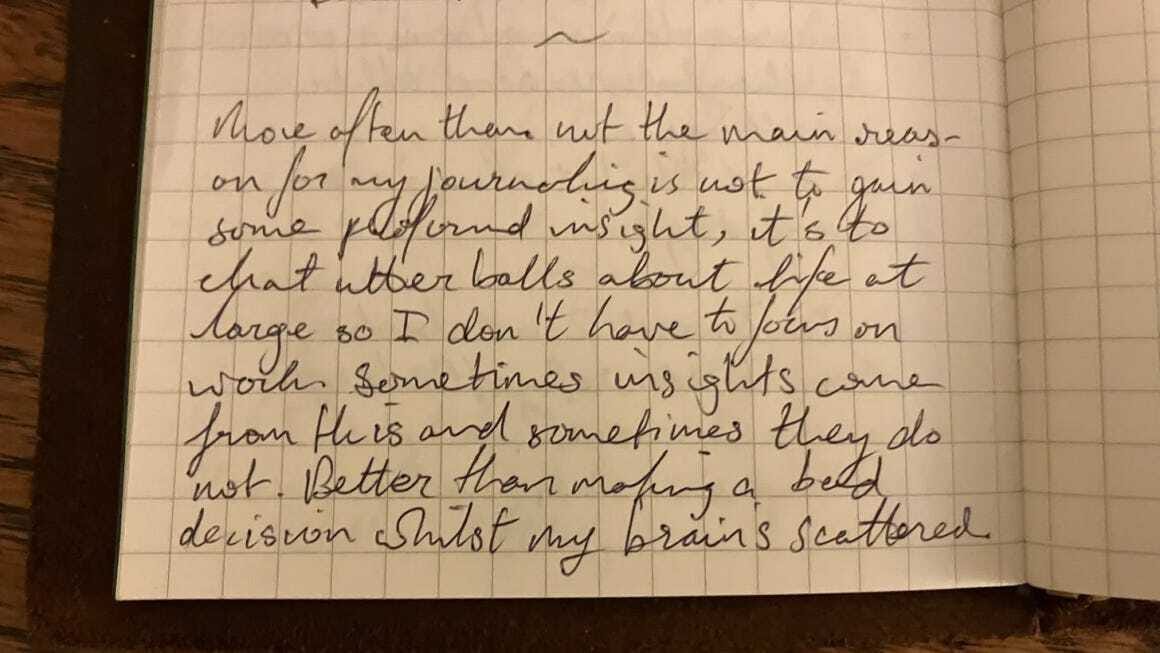 More often than not the main reas-
on for my journaling is not to gain
some profound insight, it's to
chat utter balls about life at
large so I don't have to focus on
work. Sometimes insights come
from this and sometimes they do
not. Better than making a bad
decision whilst my brain's scattered